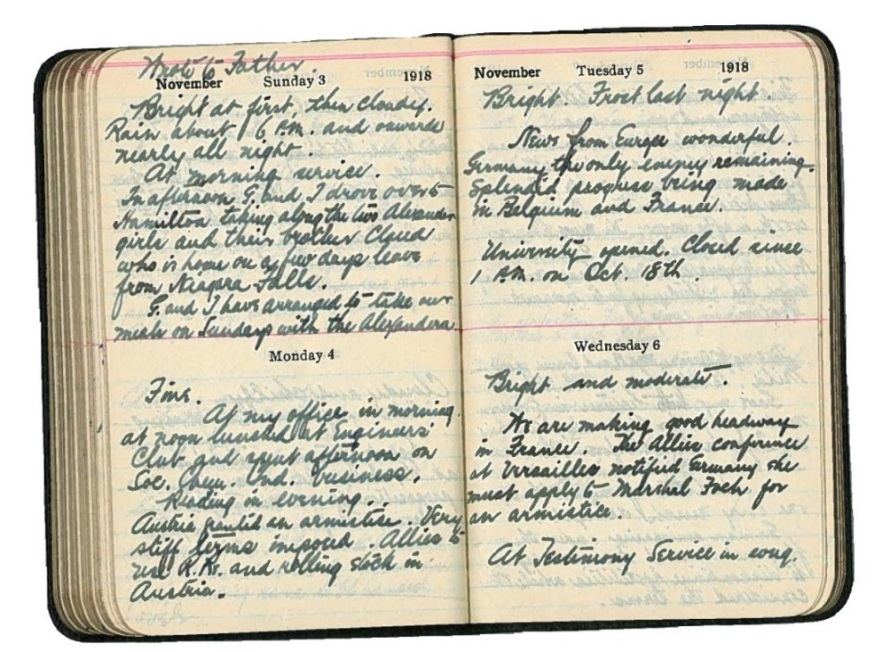 Wrote to Father.
November Sunday 3 1918
Bright at first, then cloudy.
Rain about 6 P.M. and onwards
nearly all night
At morning service.
In afternoon G. and I drove over to
Hamilton taking along the two Alexander
girls and their brother Claud
who is home on a few days leave
from Niagara Falls.
G. and I have arranged to take our
meals on Sundays with the Alexanders.
Monday 4
Fine.
At my office in morning.
at noon lunched at Engineers'
Club and spent afternoon on
Soc. Chem. Ind. business.
Reading in evening.
Austria granted an armistice. Very
stiff terms imposed. Allies to
use R.Rs. and rolling stock in
Austria.
November Tuesday 5 1918
Bright. Frost last night.
News from Europe wonderful.
Germany the only enemy remaining.
Splendid progress being made
in Belgium and France.
University opened. Closed since
1 P.M. on Oct. 18th
Wednesday 6
Bright and moderate.
We are making good headway
in France. The Allies conference
at Versailles notified Germany she
must apply to Marshal Foch for
an armistice.
At Testimony Service in evng.